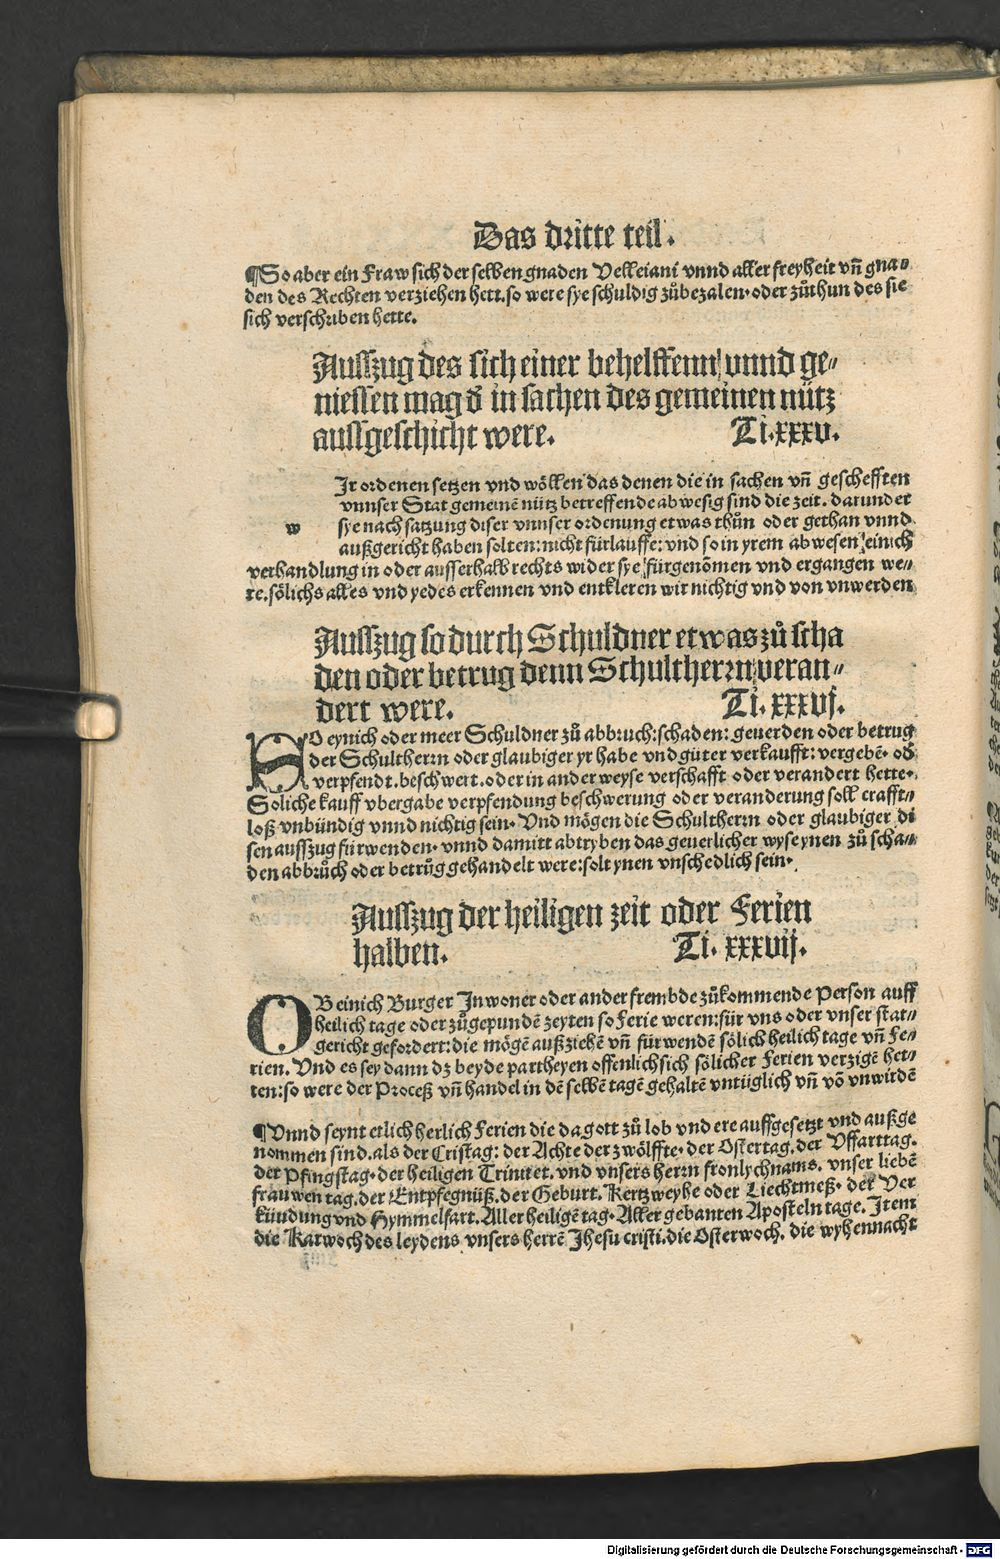 Das dritte teil.
¶So aber ein Fraw sich der selben gnaden Velleiani vnnd aller freyheit vn̄ gna⸗
den des Rechten verziehen hett. so were sye schuldig zůbezalen· oder zůthun des sie
sich verschriben hette.
Ausszug des sich einer behelffenn/ vnnd ge⸗
niessen mag d' in sachen des gemeinen nütz
aussgeschicht were. Ti.xxxv.
Ir ordenen setzen vnd wöllen das denen die in sachen vn̄ geschefften
vnnser Stat gemeinē nütz betreffende abwesig sind die zeit. darunder
w sye nach satzung diser vnnser ordenung etwas thůn oder gethan vnnd
außgericht haben solten: nicht fürlauffe: vnd so in yrem abwesen/ einich
verhandlung in oder ausserhalb rechts wider sye/ fürgenōmen vnd ergangen we⸗
re. sölichs alles vnd yedes erkennen vnd entkleren wir nichtig vnd von vnwerden
Ausszug so durch Schuldner etwas zů scha
den oder betrug denn Schultherrn/ veran⸗
dert were. Ti. xxxvj.
SO eynich oder meer Schuldner zů abbruch: schaden: geuerden oder betrug
der Schultherrn oder glaubiger yr habe vnd güter verkaufft: vergebē· od'
verpfendt. beschwert. oder in ander weyse verschafft oder verandert hette·
Soliche kauff vbergabe verpfendung beschwerung oder veranderung soll crafft⸗
loß vnbündig vnnd nichtig sein· Vnd mögen die Schultherrn oder glaubiger di
sen ausszug fürwenden· vnnd damitt abtryben das geuerlicher wyse ynen zů scha⸗
den abbrůch oder betrůg gehandelt were: solt ynen vnschedlich sein·
Ausszug der heiligen zeit oder Ferien
halben. Ti. xxxvij.
OB einich Burger Inwoner oder ander frembde zůkommende Person auff
heilich tage oder zůgepundē zeyten so Ferie weren: für vns oder vnser stat⸗
gericht gefordert: die mögē außziehē vn̄ fürwendē sölich heilich tage vn̄ Fe⸗
rien. Vnd es sey dann dz beyde partheyen offenlich sich sölicher Ferien verzigē het⸗
ten: so were der Proceß vn̄ handel in dē selbē tagē gehaltē vntüglich vn̄ vō vnwirdē
¶Vnnd seynt etlich herlich Ferien die da gott zů lob vnd ere auffgesetzt vnd außge
nommen sind. als der Cristag: der Achte der zwölffte· der Ostertag. der Vffarttag.
der Pfingstag· der heiligen Trinitet. vnd vnsers herrn fronlychnams. vnser liebē
frauwen tag. der Entpfegnüß. der Geburt. Kertzweyhe oder Liechtmeß· der Ver
kündung vnd Hymmelfart. Aller heiligē tag· Aller gebanten Aposteln tage. Item
die Karwoch des leydens vnsers herrē Jhesu cristi. die Osterwoch. die wyhennacht
Digitalisierung gefördert durch die Deutsche Forschungsgemeinschaft - DFG